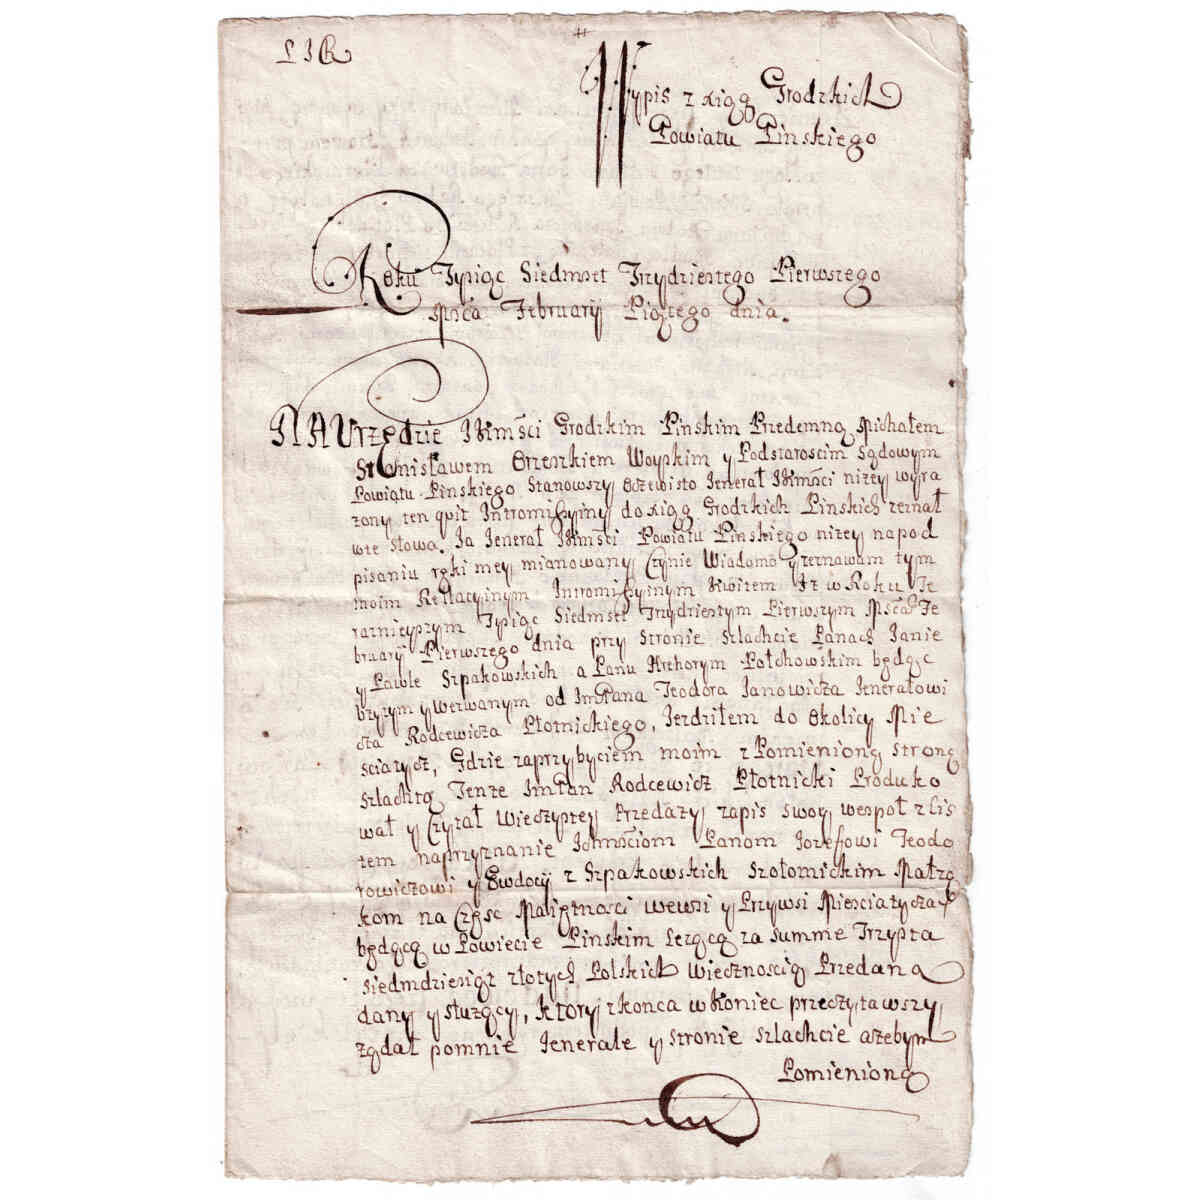 L I R
Wypis z xiąg Grodzkich
Powiatu Pinskiego
Roku Tysiąc Siedmset Trzydziestego Pierwszego
Msca Februaryj Piątego dnia.
NA Urzędzie JKmści Grodzkim Pinskim Przedemną Michałem
Stanisławem Orzeszkiem Woyskim y Podstaroscim Sądowym
Powiatu Pinskiego Stanowszy Oczewisto Jenerał JKmści niżey wyra
zony ten quit Intromissyiny do xiąg Grodzkich Pinskich zeznał
wte słowa. Ja Jenerał JKmści Powiatu Pinskiego niżey napod
pisaniu ręki mey mianowany Czynie Wiadomo y zeznawam tym
moim Rellacyinym Intromissyinym Kwitem Iż w Roku Te
raznieyszym Tysiąc Siedmset Trzydziestym Pierwszym Msca Fe
bruaryj Pierwszego dnia przy Stronie Szlachcie Panach Janie
y Pawle Szpakowskich a Panu Hrehorym Połchowskim będąc
bzyzym y wezwanym od ImPana Teodora Janowicza Jenerałowi
cza Rodcewicza Płotnickiego, Jezdziłem do Okolicy Mie
sciatycz, Gdzie zaprzybyciem moim z Pomienioną stroną
szlachtą Tenze ImPan Rodcewicz Płotnicki Produko
wał y Czytał Wieczystey Przedaży zapis swoy wespoł z Lis
tem naprzyznanie Ichmościom Panom Jozefowi Teodo
rowiczowi y Ewdocij z Szpakowskich Szołomickim Małżą
kom na Część Maiętności wewsi y Przywsi Miesciatyczach
będącą w Powiecie Pinskim Leżącą za summe Trzysta
siedmdziesiąt złotych Polskich wiecznoscią Przedana
dany y służący, ktory zkonca w Koniec przeczytawszy,
żądał pomnie Jenerale y stronie szlachcie azebym
Pomienioną